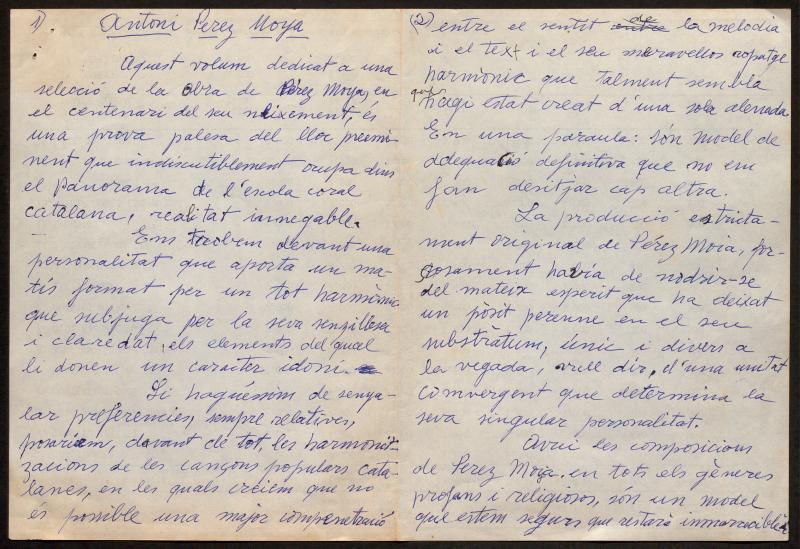 1)
Antoni Pérez Moya
Aquest volum dedicat a una
selecció de la obra de Pérez Moya, en
el centenari del seu naixement, és
una prova palesa del lloc preemi-
nent que indiscutiblement ocupa dins
el panorama de l'escola coral
catalana, realitat innegable.
Ens trobem devant una
personalitat que aporta un ma-
tís format per un tot harmònic
que subjuga per la seva senzillesa
i claredat, els elements del qual
li donen un caràcter idoni.
Si haguéssim de senya-
lar preferencies, sempre relatives,
posariem, davant de tot, les harmonit-
zacions de les cançons populars cata-
lanes, en les quals creiem que no
és possible una major compenetració
(2)
entre el sentit de la melodia
i el text i el seu meravellos ropatge
harmònic que talment sembla
que hagi estat creat d'una sola alenada
En una paraula: són model de
adequació definitiva que no em
fan desitjar cap altra.
La producció estricta-
ment original de Pérez Moya, for-
çosament havía de nodrir-se
del mateix esperit que ha deixat
un pòsit perenne en el seu
substràtum, únic i divers a
la vegada, vull dir, d'una unitat
convergent que determina la
seva singular personalitat.
Avui les composicions
de Pérez Moya, en tots els gèneres
profans i religiosos, són un model
que estem segurs que restarà inmarcible